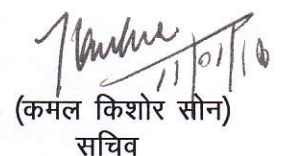 11/01/16
(कमल किशोर सोन)
सचिव